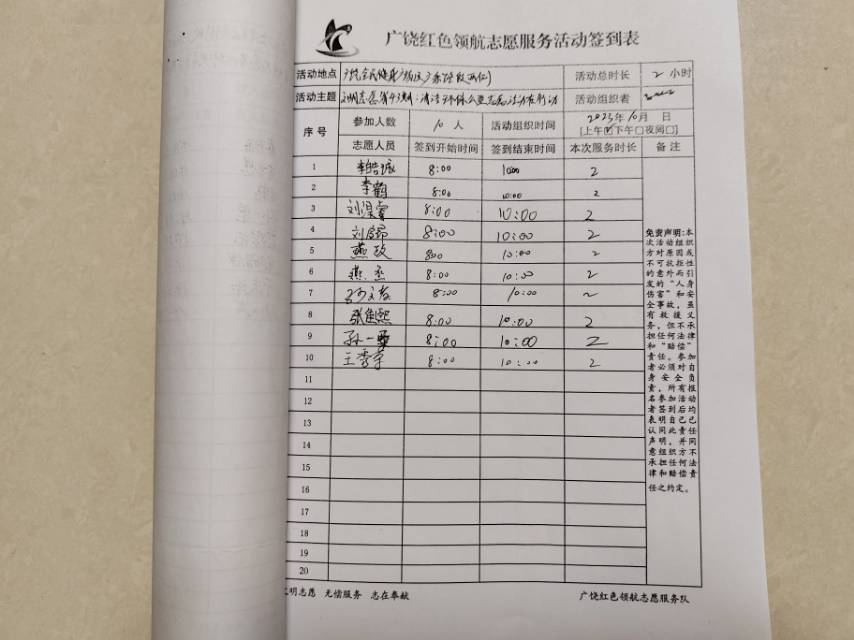 广饶红色领航志愿服务活动签到表
活动地点 活动总时长 2 小时
活动主题 活动组织者
序号 参加人数 10 人 活动组织时间 2023年10月 日
[上午☑下午□夜间□]
志愿人员 签到开始时间 签到结束时间 本次服务时长 备 注
1 8:00 10:00 2
2 李鹤 8:00 10:00 2
3 8:00 10:00 2
4 8:00 10:00 2
5 燕政 800 10:00 2
6 燕丞 8:00 10:00 2
7 8:00 10:00 2
8 8:00 10:00 2
9 孙一 8:00 10:00 2
10 王秀 8:00 10:00 2
11
12
13
14
15
16
17
18
19
20
免责声明:本
次活动组织
方对原因或
不可抗拒性
的意外而引
发的“人身
伤害”和安
全事故，虽
有救援义
务，但不承
担任何法律
和“赔偿”
责任，参加
者必须对自
身安全负
责，所有报
名参加活动
者签到后均
表明自己已
认同此责任
声明，并同
意组织方不
承担任何法
律和赔偿责
任之约定。
文明志愿 无偿服务 志在奉献
广饶红色领航志愿服务队